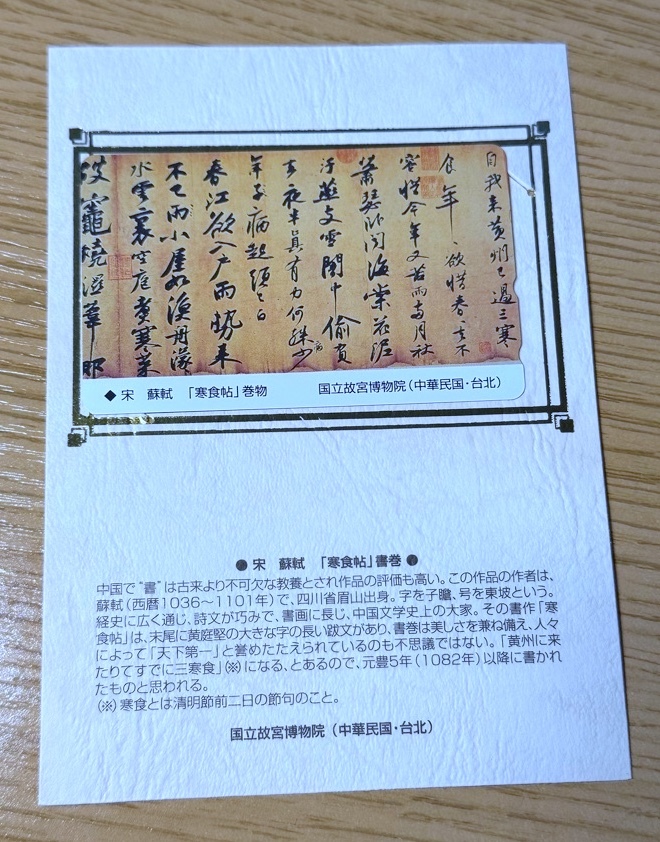 自我來黃州已過三寒
食年〻欲惜春春去不
容惜今年又苦雨兩月秋
蕭瑟臥聞海棠花泥
汙燕支雪闇中偷負
去夜半真有力何殊少
年子病起頭已白
春江欲入戶雨勢來
不已雨小屋如漁舟濛〻
水雲裏空庖煮寒菜
破竈燒濕葦那
◆ 宋 蘇軾 「寒食帖」巻物 国立故宮博物院(中華民国・台北)
● 宋 蘇軾 「寒食帖」書巻 ●
中国で“書”は古来より不可欠な教養とされ作品の評価も高い。この作品の作者は、
蘇軾(西暦1036〜1101年)で、四川省眉山出身。字を子瞻、号を東坡という。
経史に広く通じ、詩文が巧みで、書画に長じ、中国文学史上の大家。その書作「寒
食帖」は、末尾に黄庭堅の大きな字の長い跋文があり、書巻は美しさを兼ね備え、人々
によって「天下第一」と誉めたたえられているのも不思議ではない。「黄州に来
たりてすでに三寒食」(※)になる、とあるので、元豊5年(1082年)以降に書かれ
たものと思われる。
(※)寒食とは清明節前二日の節句のこと。
国立故宮博物院(中華民国・台北)